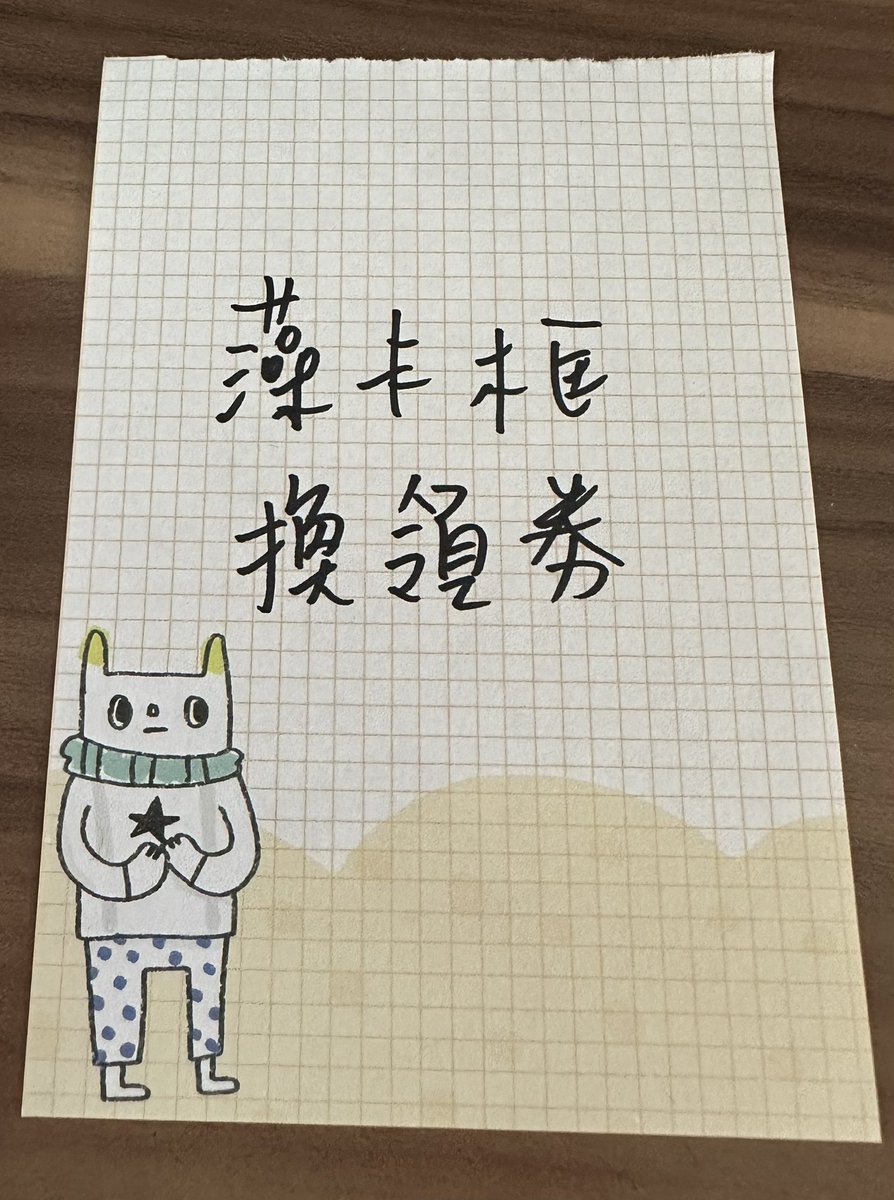 藻卡框
換領券